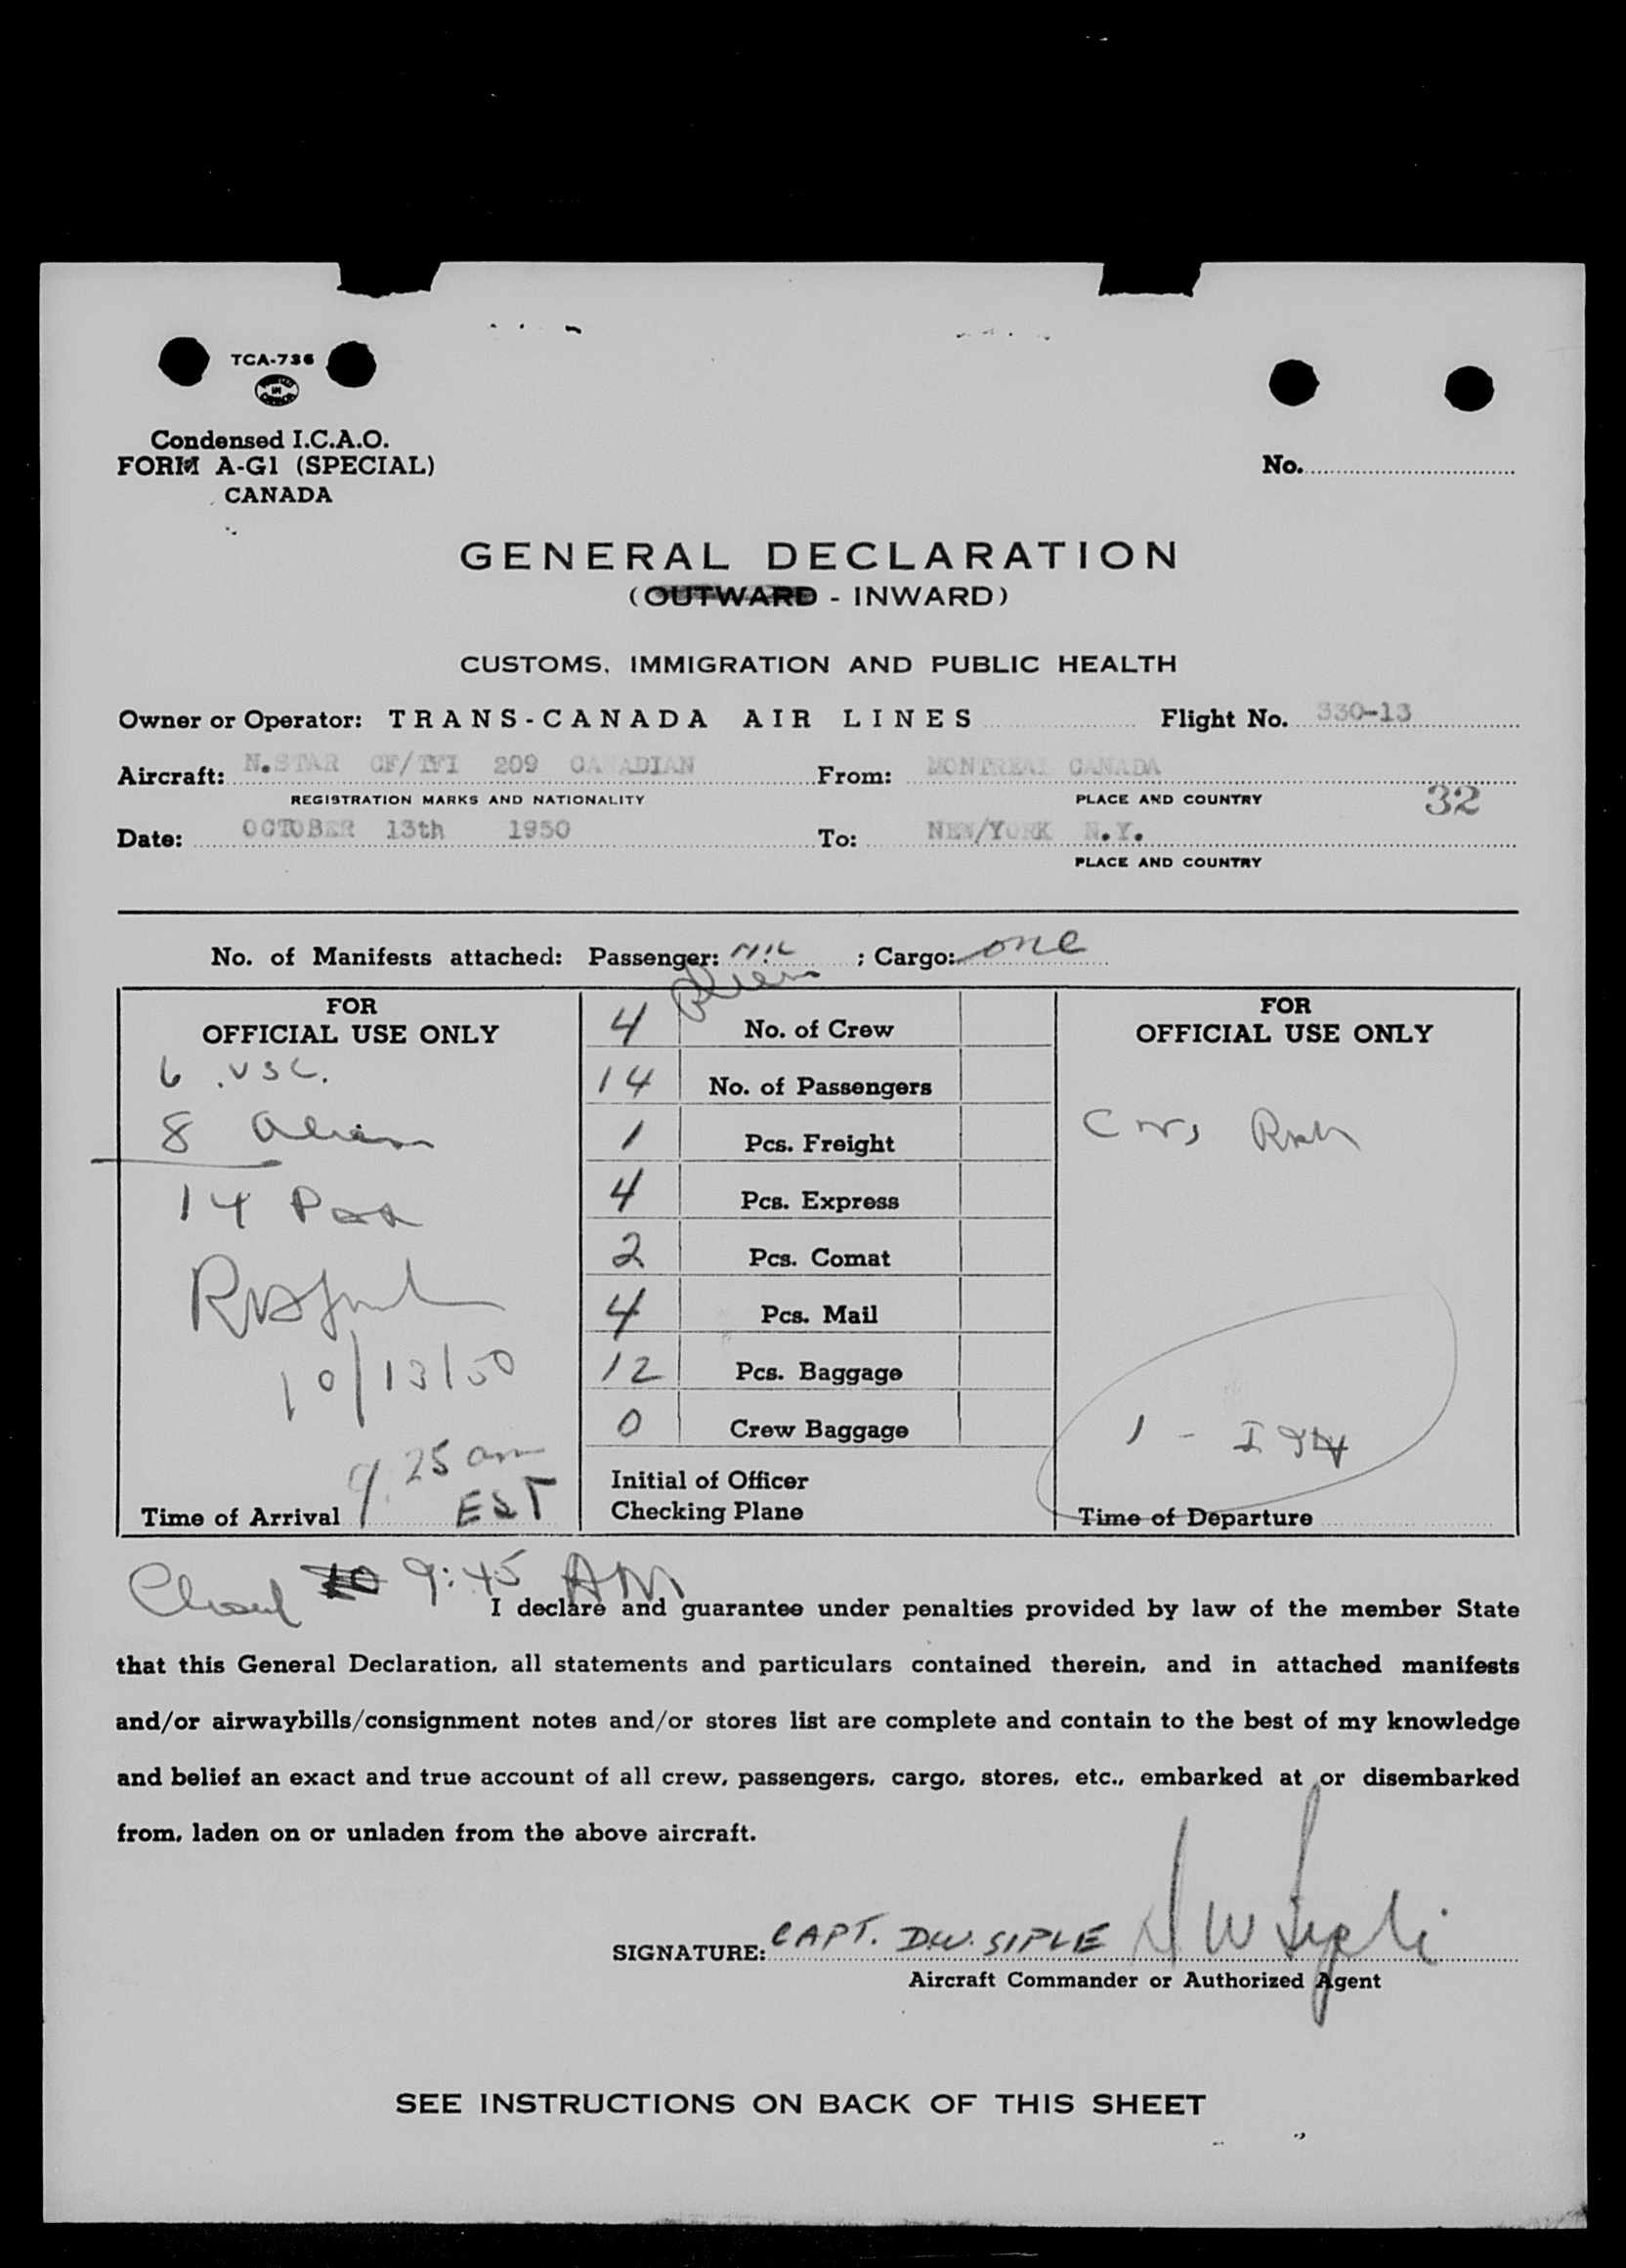 TCA-736
Condensed I.C.A.O.
FORM A-G1 (SPECIAL)
CANADA
No.
GENERAL DECLARATION
(OUTWARD - INWARD)
CUSTOMS, IMMIGRATION AND PUBLIC HEALTH
Owner or Operator: TRANS-CANADA AIR LINES Flight No. 330-13
Aircraft: N.STAR CF/TFI 209 CANADIAN From: MONTREAL CANADA
REGISTRATION MARKS AND NATIONALITY PLACE AND COUNTRY
32
Date: OCTOBER 13th 1950 To: NEW/YORK N.Y.
PLACE AND COUNTRY
No. of Manifests attached: Passenger: NIL ; Cargo: one
Alien
FOR
OFFICIAL USE ONLY
6 USC.
8 Alien
14 Pax
10/13/50
9.25 am
EST
Time of Arrival
4 No. of Crew
14 No. of Passengers
1 Pcs. Freight
4 Pcs. Express
2 Pcs. Comat
4 Pcs. Mail
12 Pcs. Baggage
0 Crew Baggage
Initial of Officer
Checking Plane
FOR
OFFICIAL USE ONLY
1 -
Time of Departure
9:45 AM
I declare and guarantee under penalties provided by law of the member State
that this General Declaration, all statements and particulars contained therein, and in attached manifests
and/or airwaybills/consignment notes and/or stores list are complete and contain to the best of my knowledge
and belief an exact and true account of all crew, passengers, cargo, stores, etc., embarked at or disembarked
from, laden on or unladen from the above aircraft.
SIGNATURE: CAPT. D.W. SIPLE D W Siple
Aircraft Commander or Authorized Agent
SEE INSTRUCTIONS ON BACK OF THIS SHEET